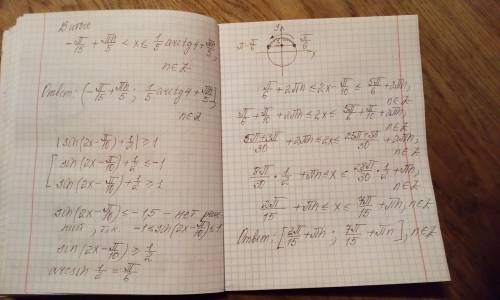 Виете
-π/15 + πn/5 < x ≤ 1/5 arcctg 4 + πn/5,
n∈Z
Ответ: (-π/15 + πn/5; 1/5 arcctg 4 + πn/5,
n∈Z
|sin(2x-π/10)+1/2| ≥ 1
[sin(2x-π/10)+1/2 ≤ -1
sin(2x-π/10)+1/2 ≥ 1
sin(2x-π/10) ≤ -1,5 - нет реше
ний, т.к. -1≤sin(2x-π/10)≤1
sin(2x-π/10) ≥ 1/2
arcsin 1/2 = π/6
y
π-π/6 π/6
x
π/6 + 2πn ≤ 2x - π/10 ≤ 5π/6 + 2πn,
n∈Z
π/6 + π/10 + 2πn ≤ 2x ≤ 5π/6 + π/10 + 2πn,
n∈Z
5π+3π/30 + 2πn ≤ 2x ≤ 25π+3π/30 + 2πn,
n∈Z
8π/30 · 1/2 + πn ≤ x ≤ 28π/30 · 1/2 + πn,
n∈Z
2π/15 + πn ≤ x ≤ 7π/15 + πn, n∈Z
Ответ: [2π/15 + πn; 7π/15 + πn], n∈Z